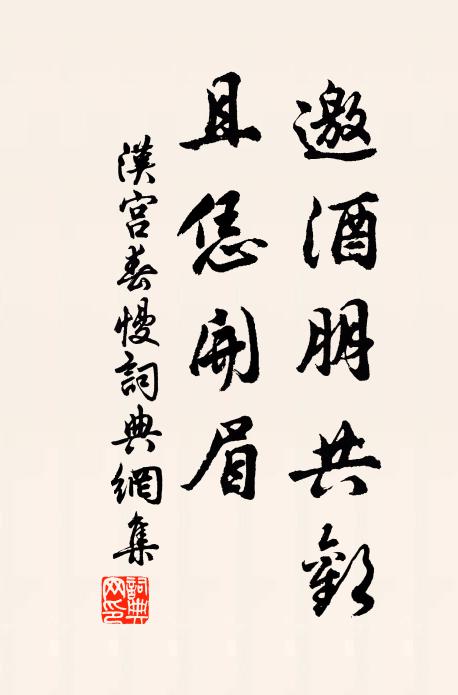 邀酒朋共歡
且恁開眉
漢宮春慢詞典網集
詞典
网印